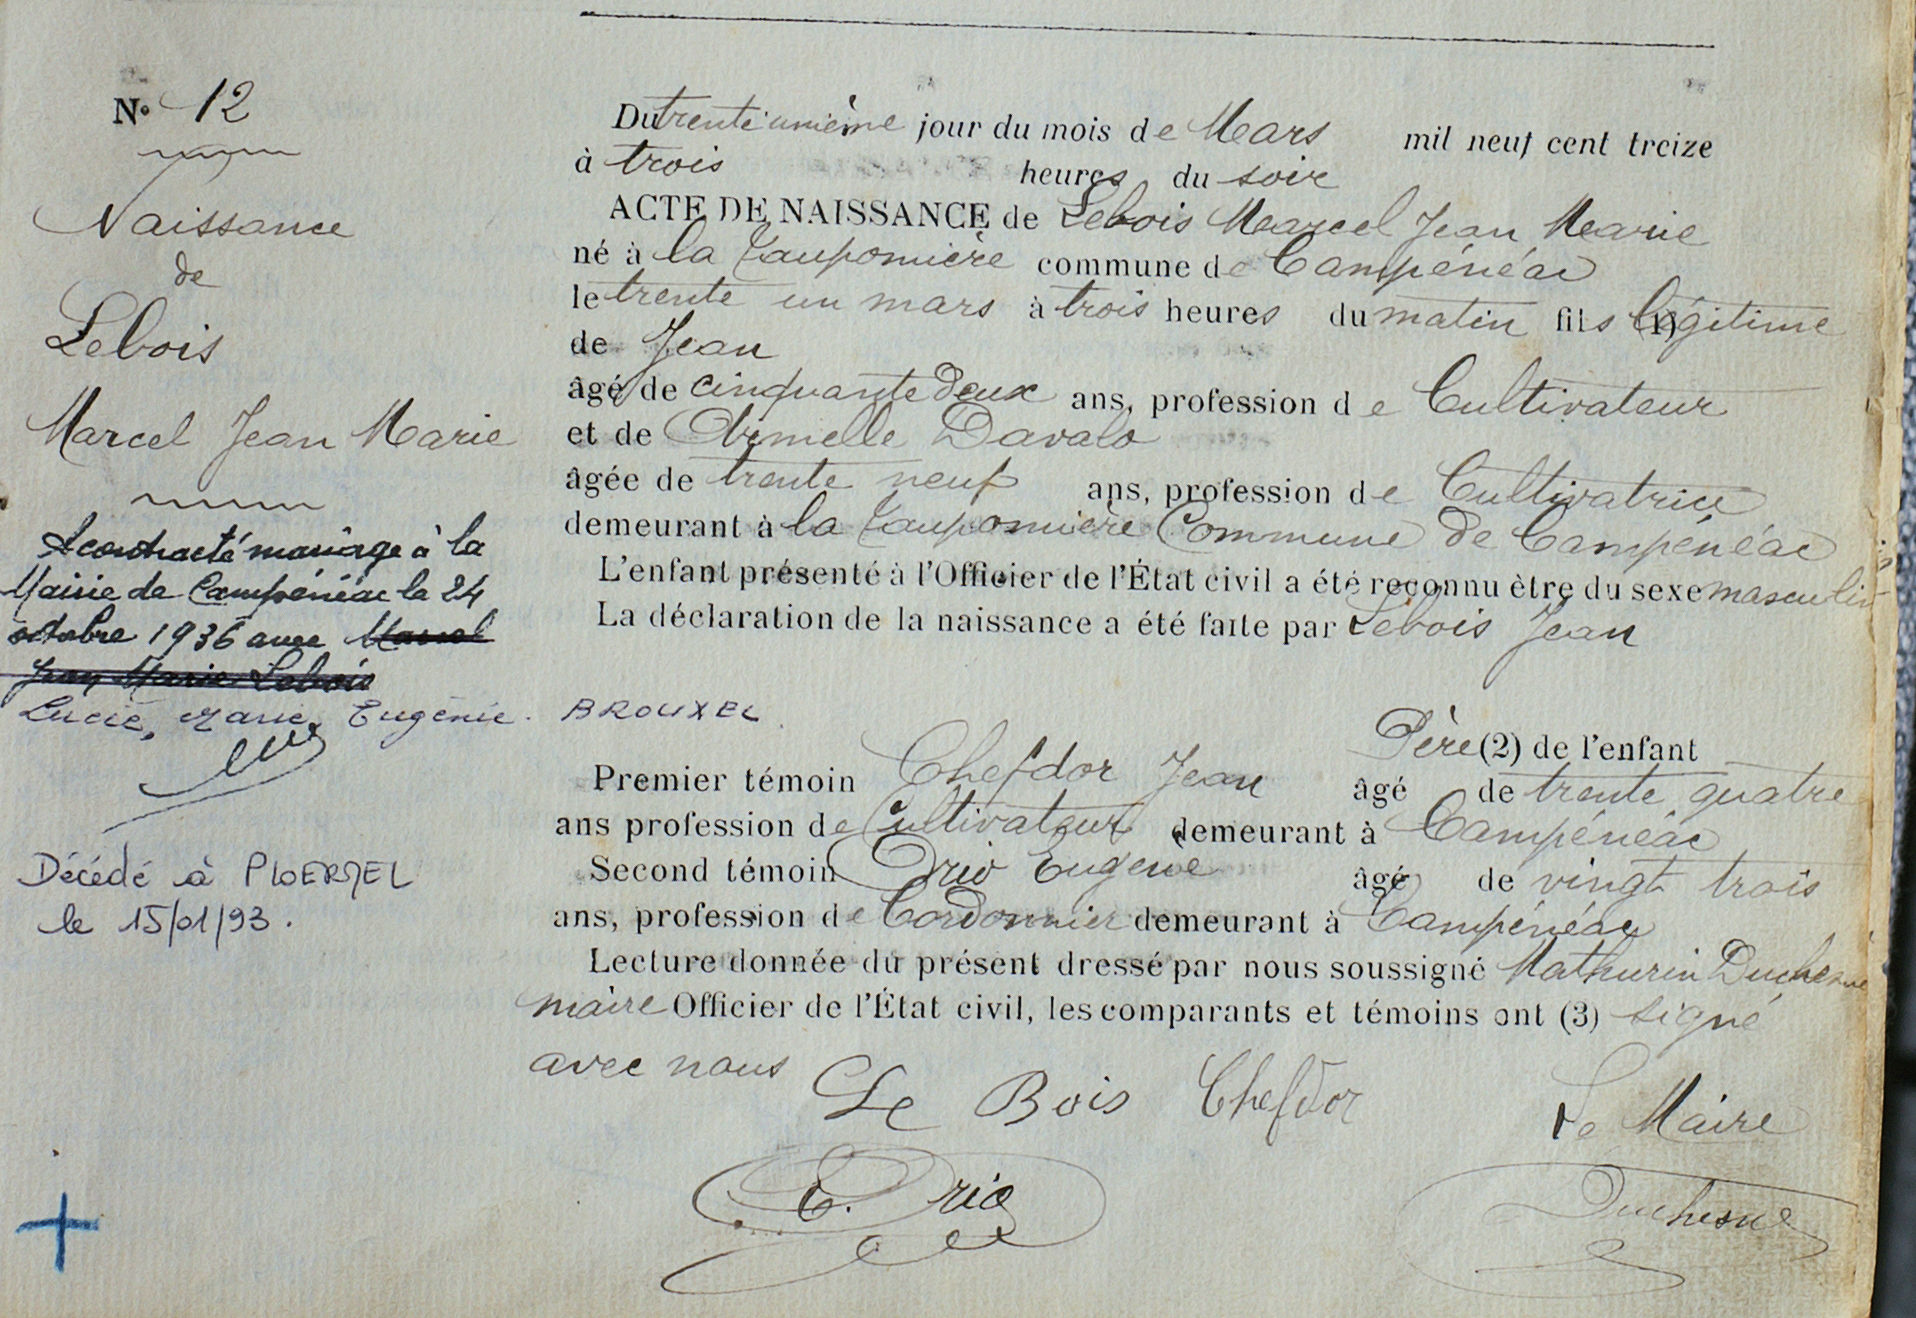 N° 12
Naissance
de
Lebois
Marcel Jean Marie
A contracté mariage à la
Mairie de Campénéac le 24
octobre 1936 avec Marcel
Jean Marie Lebois
Lucie, Marie, Eugénie. BROUXEL
Décédé à PLOERMEL
le 15/01/93.
Du trente unième jour du mois de Mars mil neuf cent treize
à trois heures du soir
ACTE DE NAISSANCE de Lebois Marcel Jean Marie
né à la Taupomière commune de Campénéac
le trente un mars à trois heures du matin fils (1) légitime
de Jean
âgé de cinquante deux ans, profession de Cultivateur
et de Armelle Davalo
âgée de trente neuf ans, profession de Cultivatrice
demeurant à la Taupomière Commune de Campénéac
L'enfant présenté à l'Officier de l'État civil a été reconnu être du sexe masculin
La déclaration de la naissance a été faite par Lebois Jean
Père (2) de l'enfant
Premier témoin Chefdor Jean âgé de trente quatre
ans profession de Cultivateur demeurant à Campénéac
Second témoin Orio Eugene âgé de vingt trois
ans, profession de Cordonnier demeurant à Campénéac
Lecture donnée du présent dressé par nous soussigné Mathurin Duchesne
maire Officier de l'État civil, les comparants et témoins ont (3) signé
avec nous
Le Bois Chefdor Le Maire
E. Orio Duchesne